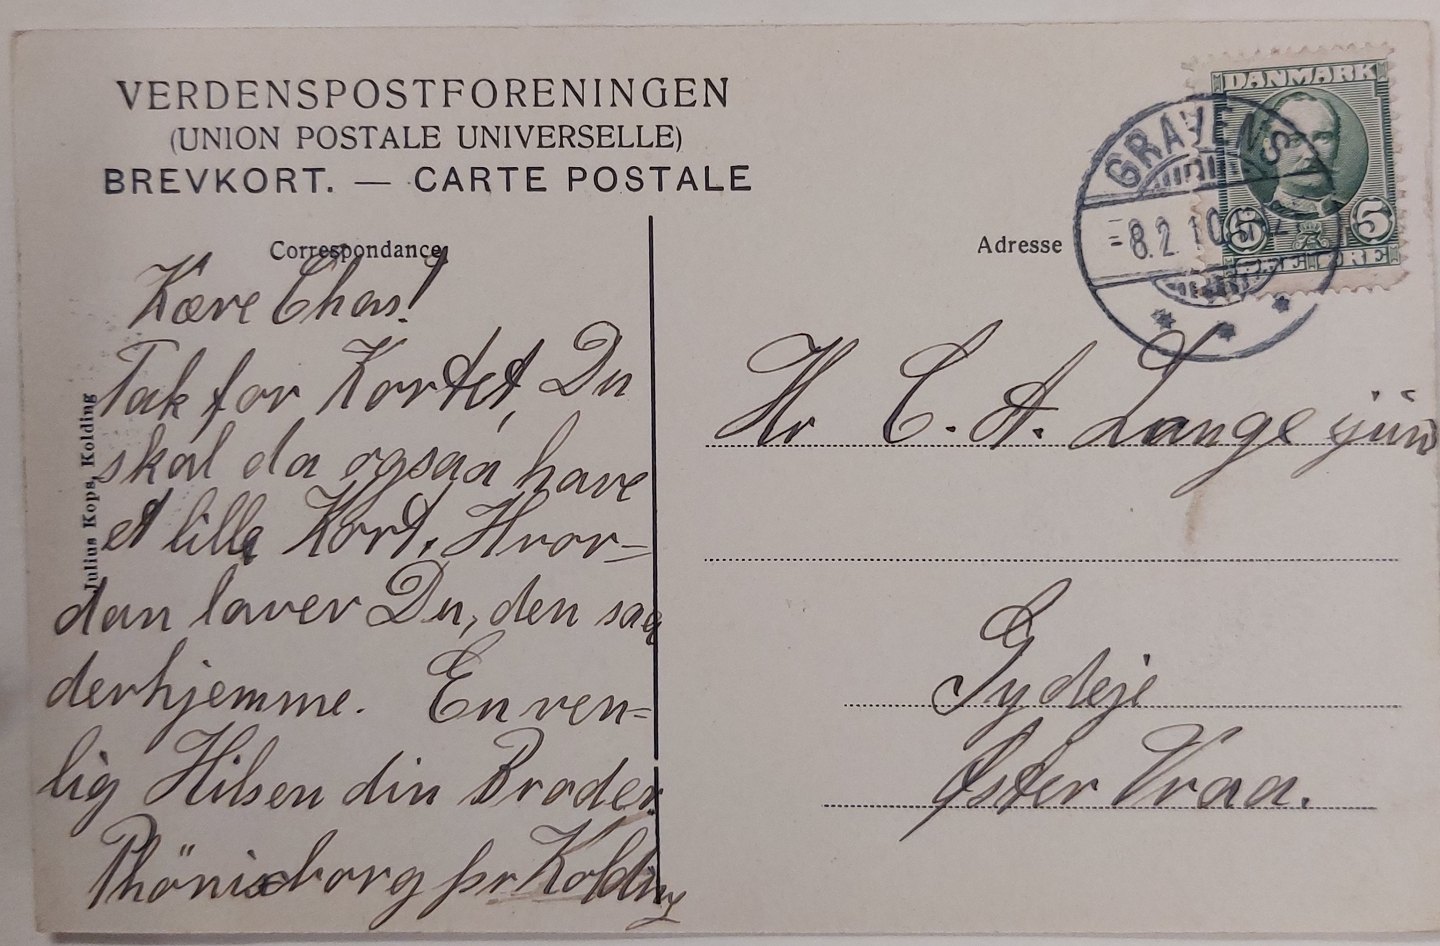 VERDENSPOSTFORENINGEN
(UNION POSTALE UNIVERSELLE)
BREVKORT. — CARTE POSTALE
Correspondance
Kære Chas!
Tak for Kortet, Du
skal da ogsaa have
et lille Kort. Hvor=
dan laver Du, den saa
derhjemme. En ven=
lig Hilsen din Broder.
Phönixborg pr Kolding
Julius Kops, Kolding
DANMARK
5 5
ØRE
GRAVENS
8.2.10
Adresse
Hr C. A. Lange jun
Gydeje
Øster Vraa.